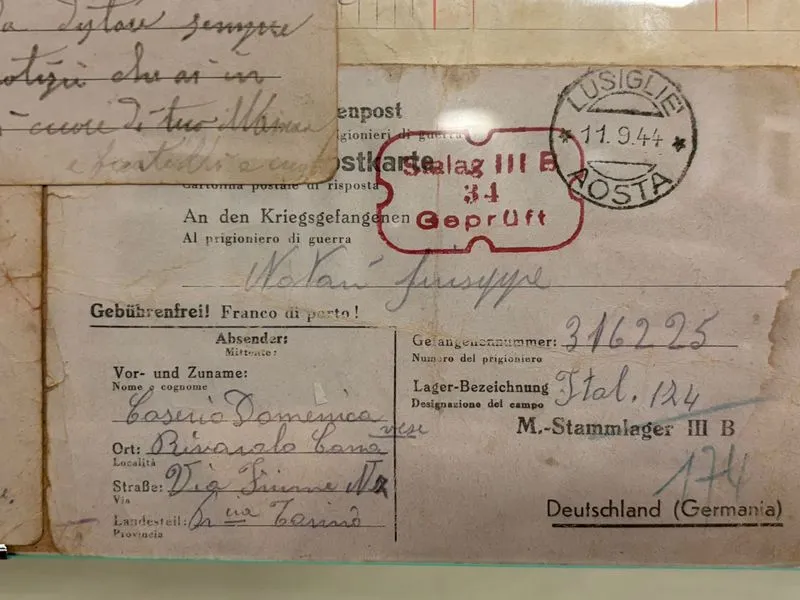 sempre
che ai in
cuore di tuo
enpost
igionieri di guerra
ostkarte
Cartolina postale di risposta
An den Kriegsgefangenen
Al prigioniero di guerra
Stalag III B
34
Geprüft
LUSIGLIE'
* 11.9.44 *
AOSTA
Giuseppe
Gebührenfrei! Franco di porto!
Absender:
Mittente:
Vor- und Zuname:
Nome e cognome
Caserio Domenica
Ort: Rivarolo Cana
vese
Località
Straße: Via Fiume
Via
Landesteil: P cia Torino
Provincia
Gefangenennummer: 316225
Numero del prigioniero
Lager-Bezeichnung Ital. 124
Designazione del campo
M.-Stammlager III B
174
Deutschland (Germania)